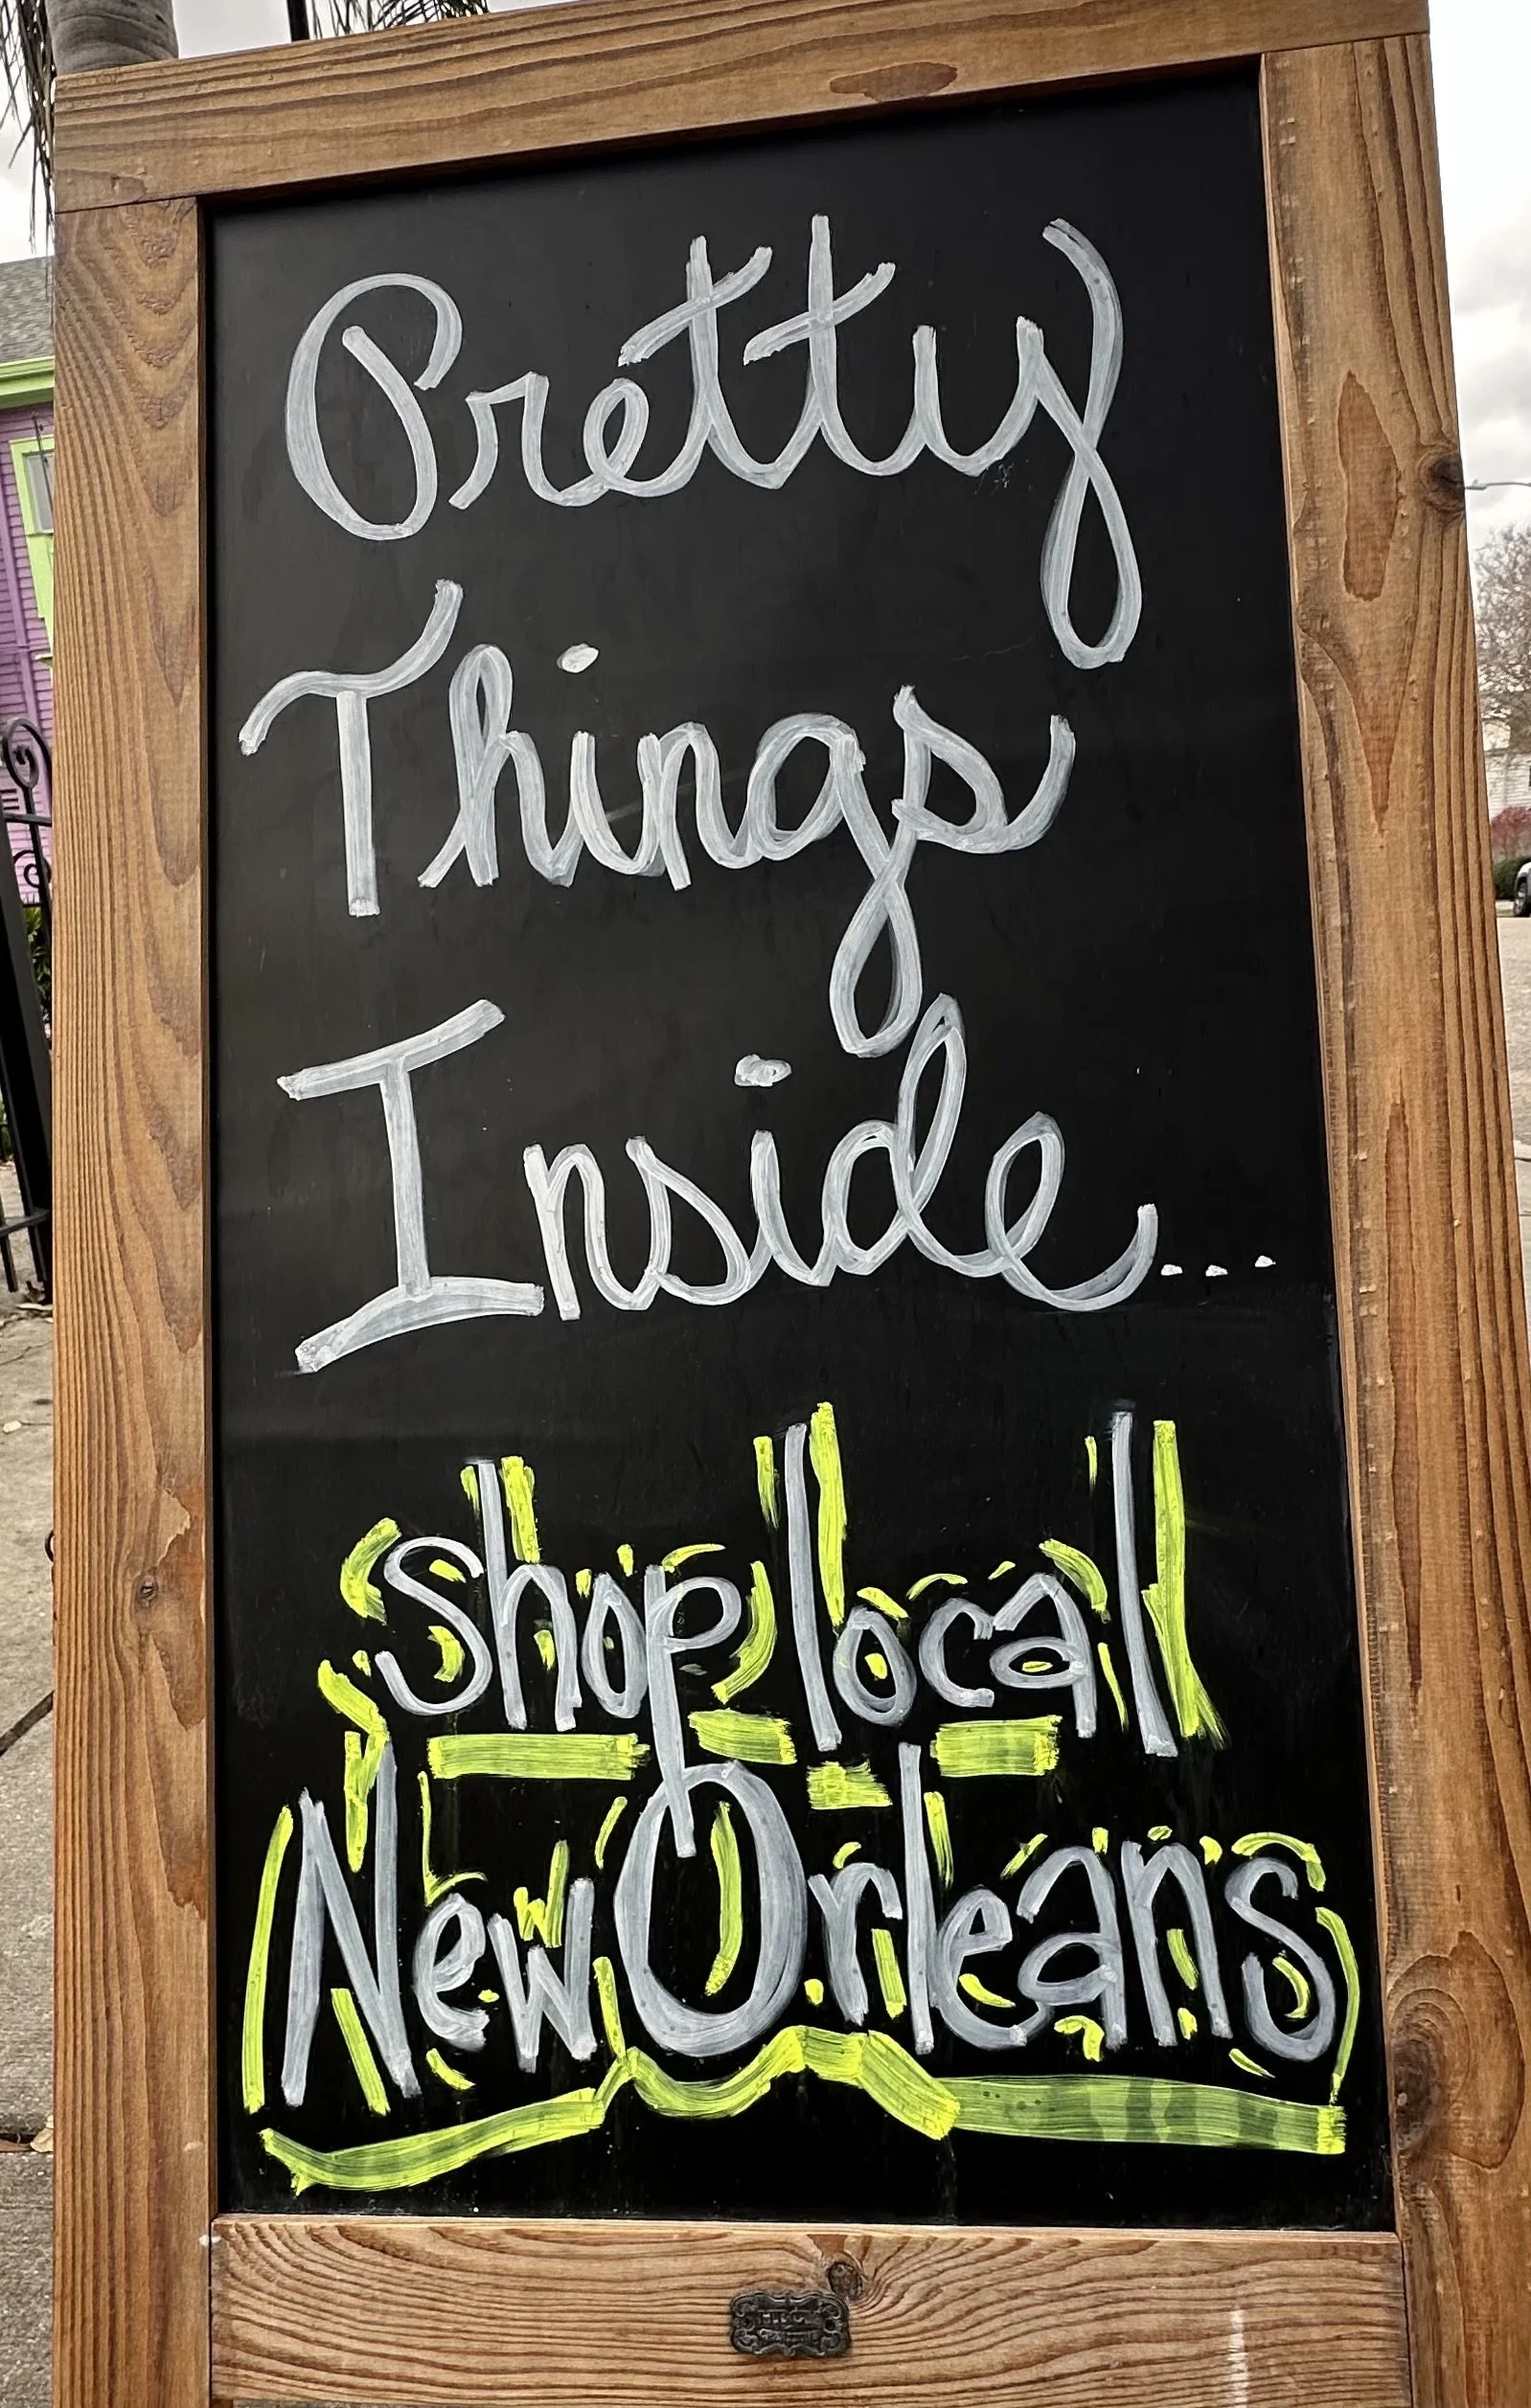 Pretty
Things
Inside...
shop local
New Orleans